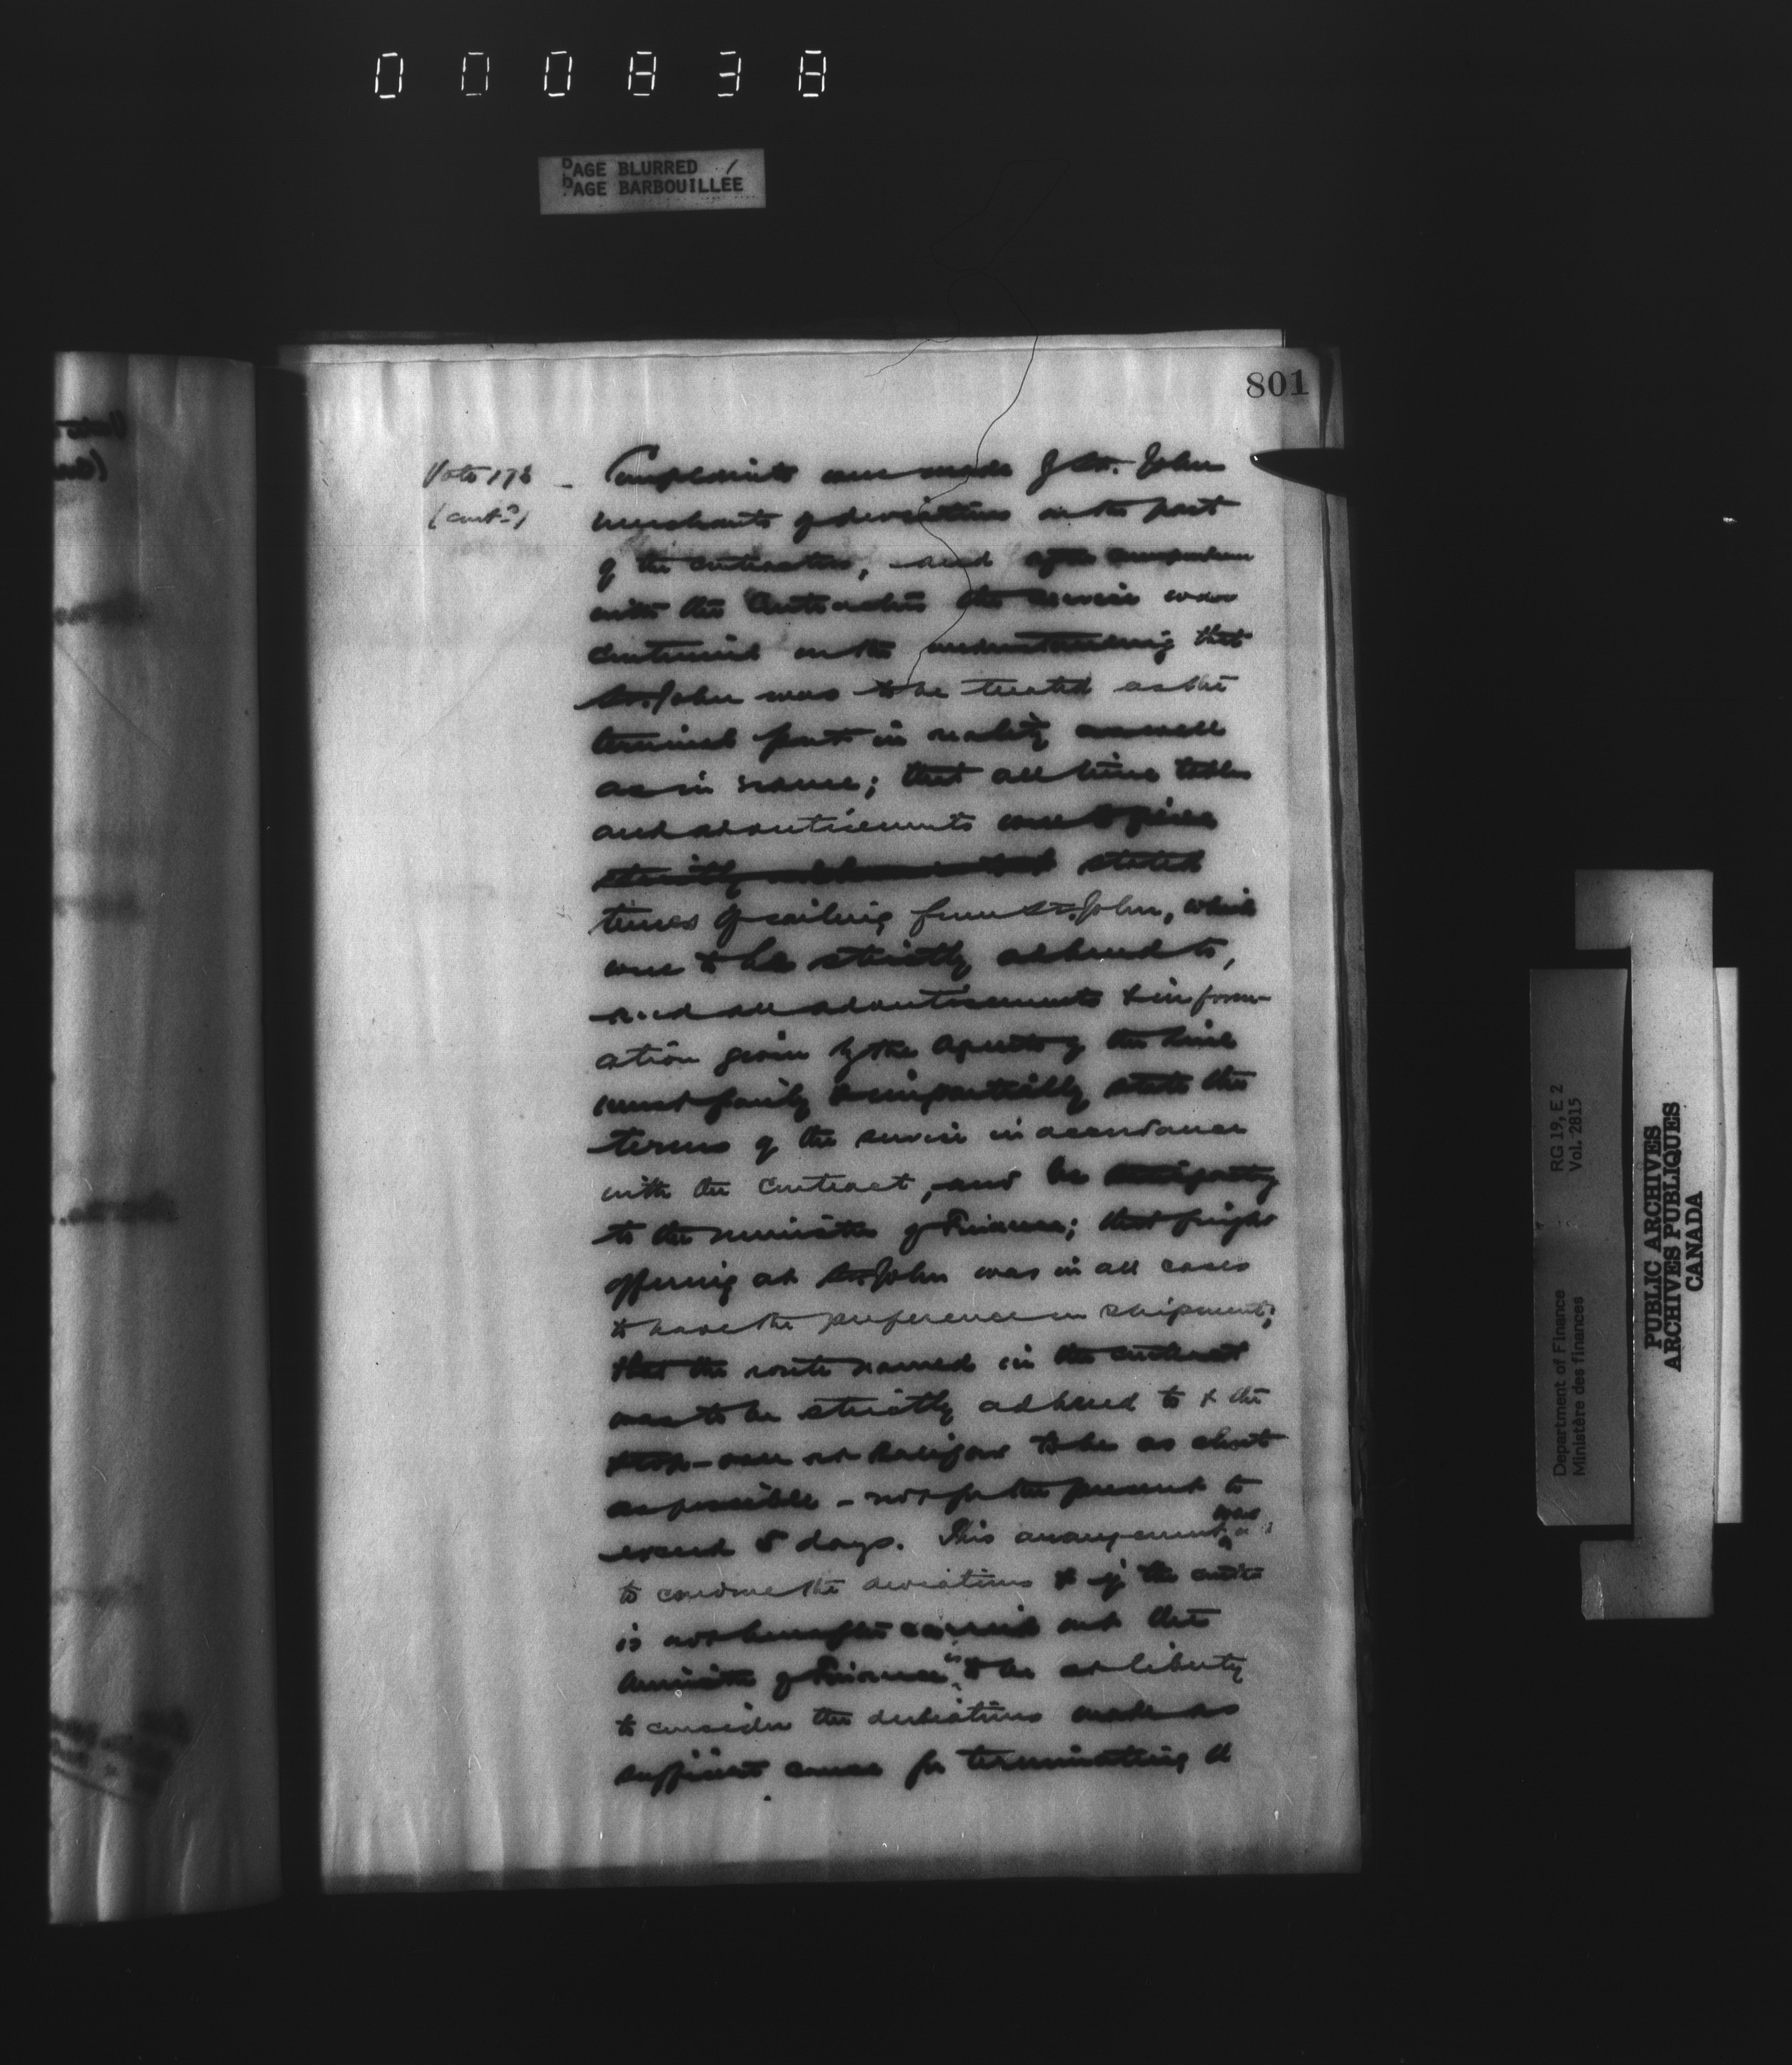 000838
PAGE BLURRED
PAGE BARBOUILLÉE
801
Vote 178 – Complaints were made by St. John
(contd)
merchants of deviations on the part
of the contractors, and after
with the Contractors the service was
continued on the understanding that
St. John was to be treated as the
terminal port in reality as well
as in name; that all time tables
and advertisements were to give
stated
times of sailing from St. John, which
were to be strictly adhered to,
and all advertisements & inform-
ation given by the Agents of the line
must fairly & impartially state the
terms of the service in accordance
with the contract, and be
to the minister of Finance; that freight
offering at St. John was in all cases
to have the preference in shipment;
that the route named in the contract
was to be strictly adhered to & the
stop-over at Halifax to be as short
as possible – not for the present to
exceed 5 days. This arrangement was
to condone the deviations & if the
is not hereafter carried out the
minister of Finance is to be at liberty
to consider the deviations made as
sufficient cause for terminating the
RG 19, E 2
Vol. 2815
Department of Finance
Ministère des finances
PUBLIC ARCHIVES
ARCHIVES PUBLIQUES
CANADA